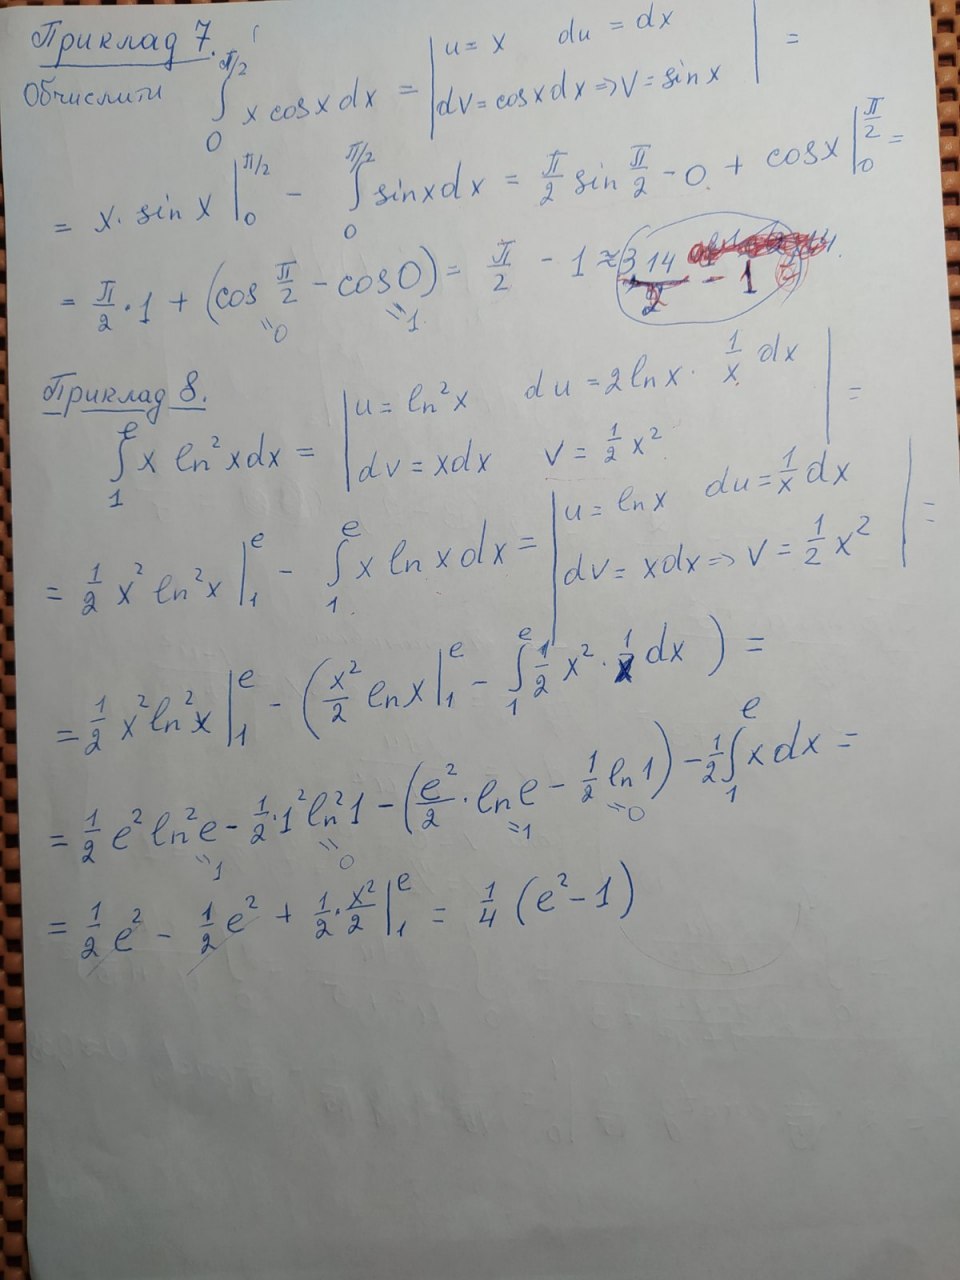 Приклад 7.
Обчислити ∫₀^{π/2} x cos x dx = | u = x du = dx
dv = cosx dx ⇒ v = sin x | =
= x · sin x |₀^{π/2} − ∫₀^{π/2} sinx dx = π/2 sin π/2 − 0 + cosx |₀^{π/2} =
= π/2 · 1 + (cos π/2 − cos 0) = π/2 − 1 ≈ 3,14/2 − 1
"0 "1
Приклад 8.
∫₁^e x ln²x dx = | u = ln²x du = 2 ln x · 1/x dx
dv = xdx v = 1/2 x² | =
= 1/2 x² ln²x |₁^e − ∫₁^e x ln x dx = | u = ln x du = 1/x dx
dv = xdx ⇒ v = 1/2 x² | =
= 1/2 x² ln²x |₁^e − (x²/2 ln x |₁^e − ∫₁^e 1/2 x² · 1/x dx) =
= 1/2 e² ln²e − 1/2 · 1² ln²1 − (e²/2 · ln e − 1/2 ln 1) − 1/2 ∫₁^e x dx =
"1 "0 "1 "0
= 1/2 e² − 1/2 e² + 1/2 · x²/2 |₁^e = 1/4 (e² − 1)